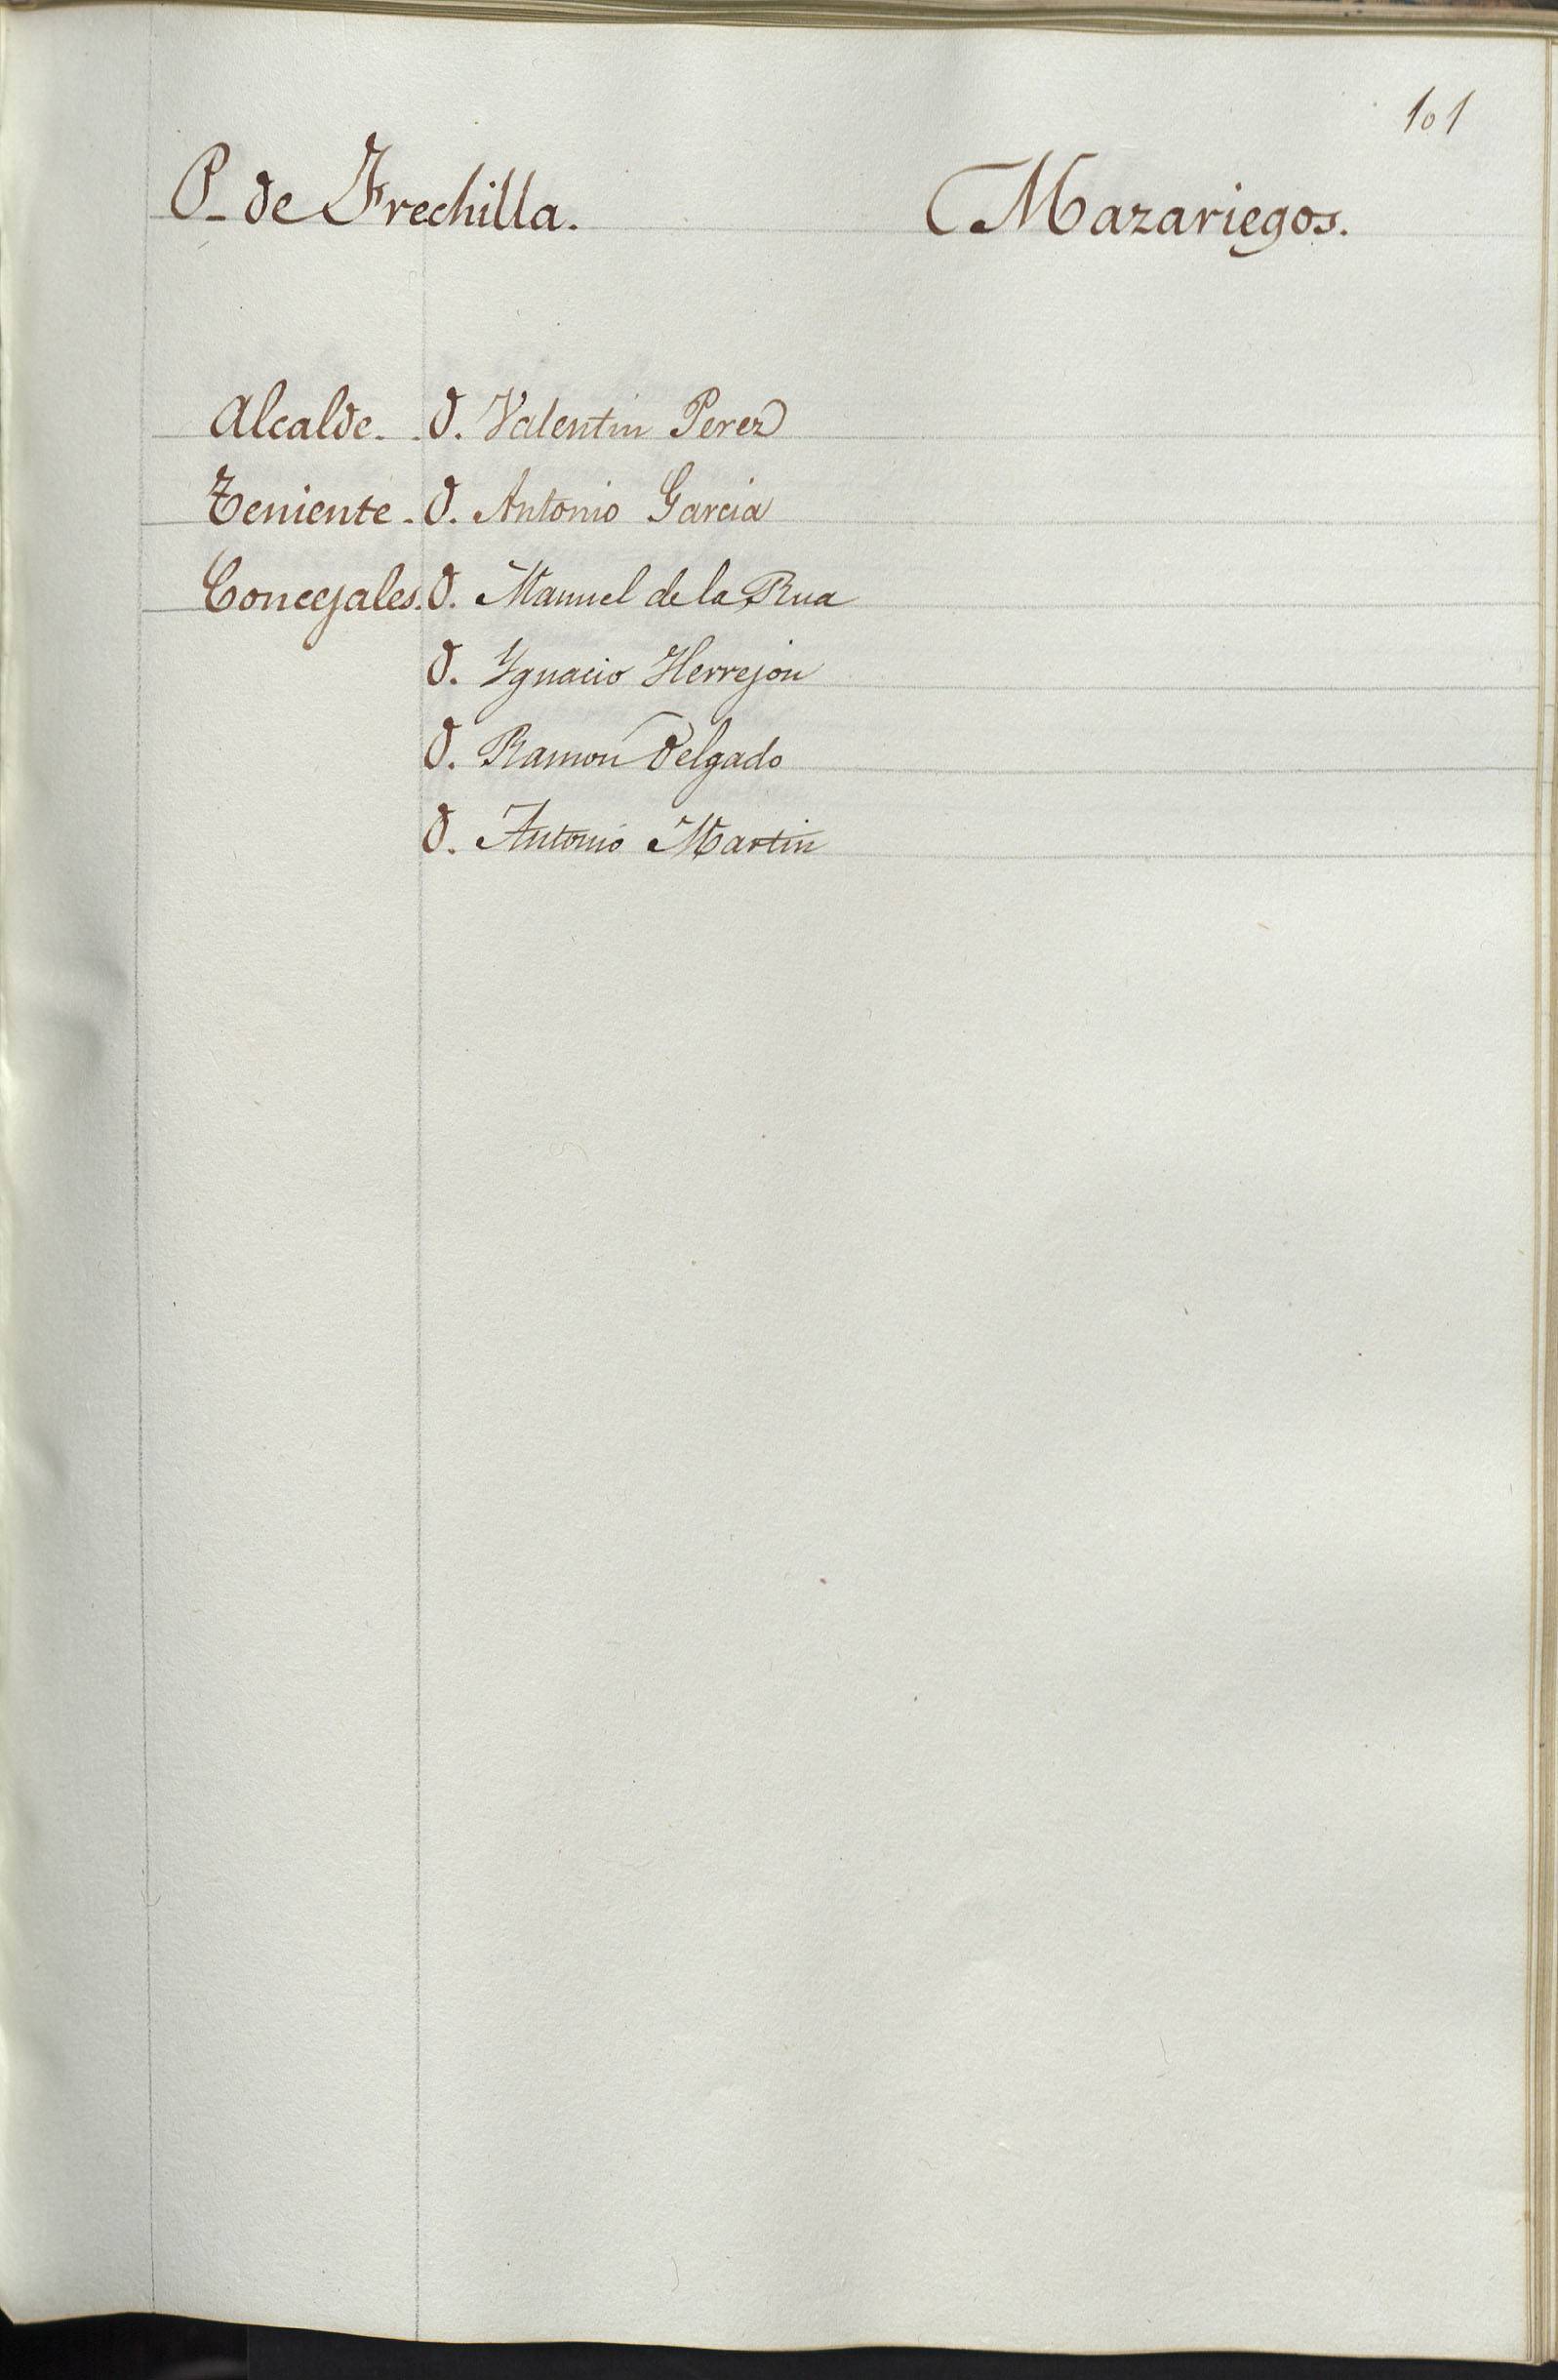 101
P. de Frechilla. Mazariegos.
Alcalde. D. Valentin Perez
Teniente. D. Antonio Garcia
Concejales. D. Manuel de la Rua
D. Ygnacio Herrejon
D. Ramon Delgado
D. Antonio Martin